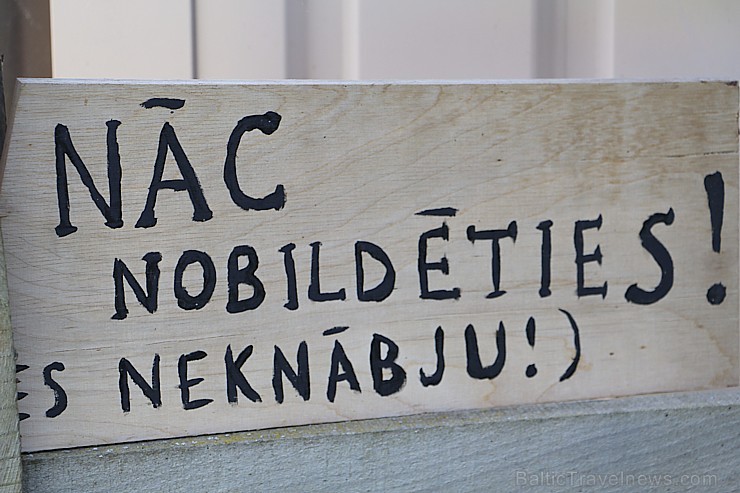 NĀC
NOBILDĒTIES!
ES NEKNĀBJU!)
BalticTravelnews.com